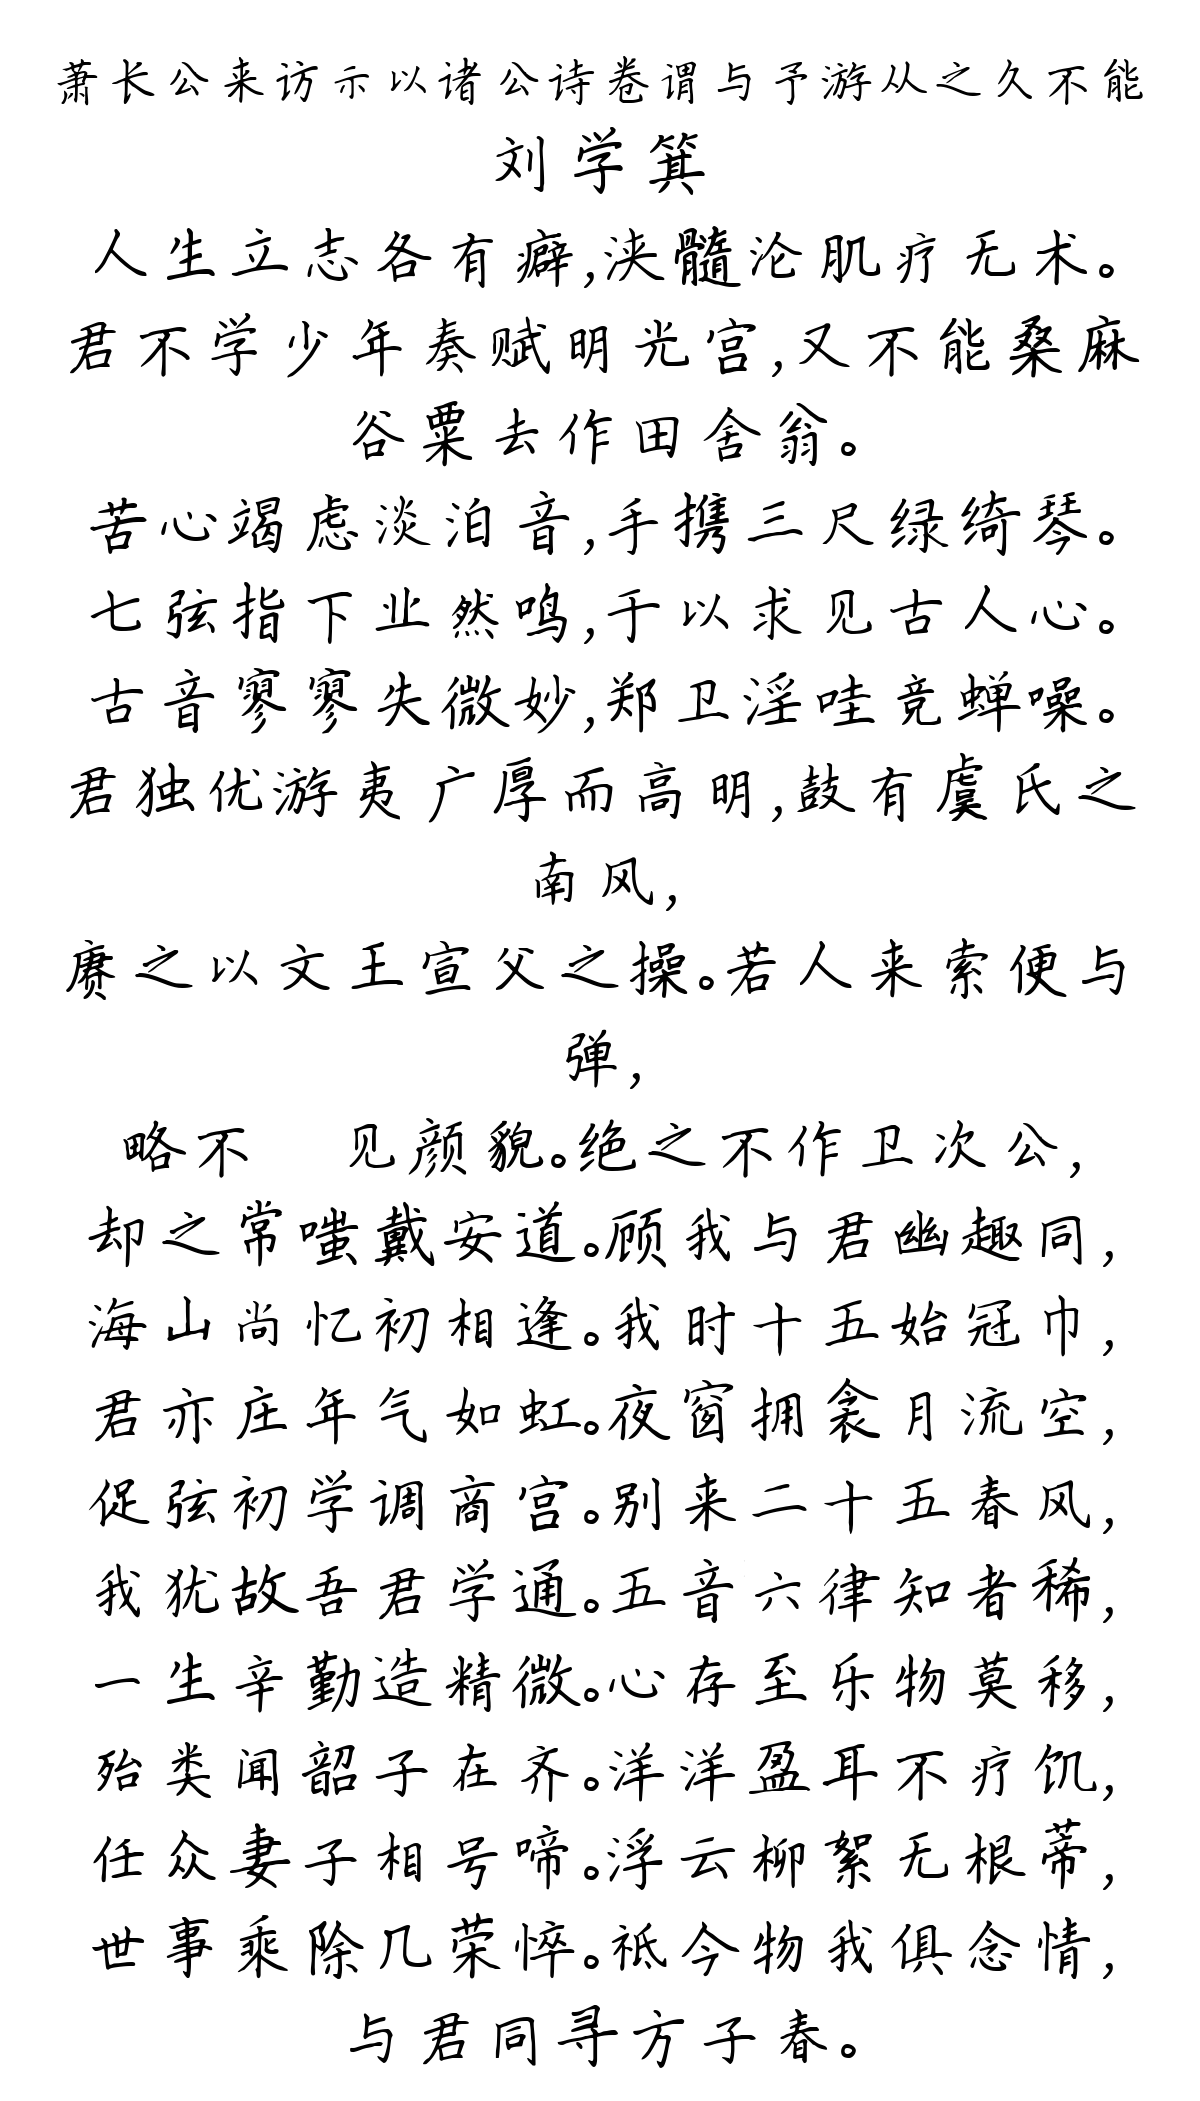 萧长公来访示以诸公诗卷谓与予游从之久不能
刘学箕
人生立志各有癖,浃髓沦肌疗无术。
君不学少年奏赋明光宫,又不能桑麻
谷粟去作田舍翁。
苦心竭虑淡泊音,手携三尺绿绮琴。
七弦指下业然鸣,于以求见古人心。
古音寥寥失微妙,郑卫淫哇竞蝉噪。
君独优游夷广厚而高明,鼓有虞氏之
南风,
赓之以文王宣父之操。若人来索便与
弹,
略不 见颜貌。绝之不作卫次公,
却之常嗤戴安道。顾我与君幽趣同,
海山尚忆初相逢。我时十五始冠巾,
君亦庄年气如虹。夜窗拥衾月流空,
促弦初学调商宫。别来二十五春风,
我犹故吾君学通。五音六律知者稀,
一生辛勤造精微。心存至乐物莫移,
殆类闻韶子在齐。洋洋盈耳不疗饥,
任众妻子相号啼。浮云柳絮无根蒂,
世事乘除几荣悴。祗今物我俱念情,
与君同寻方子春。